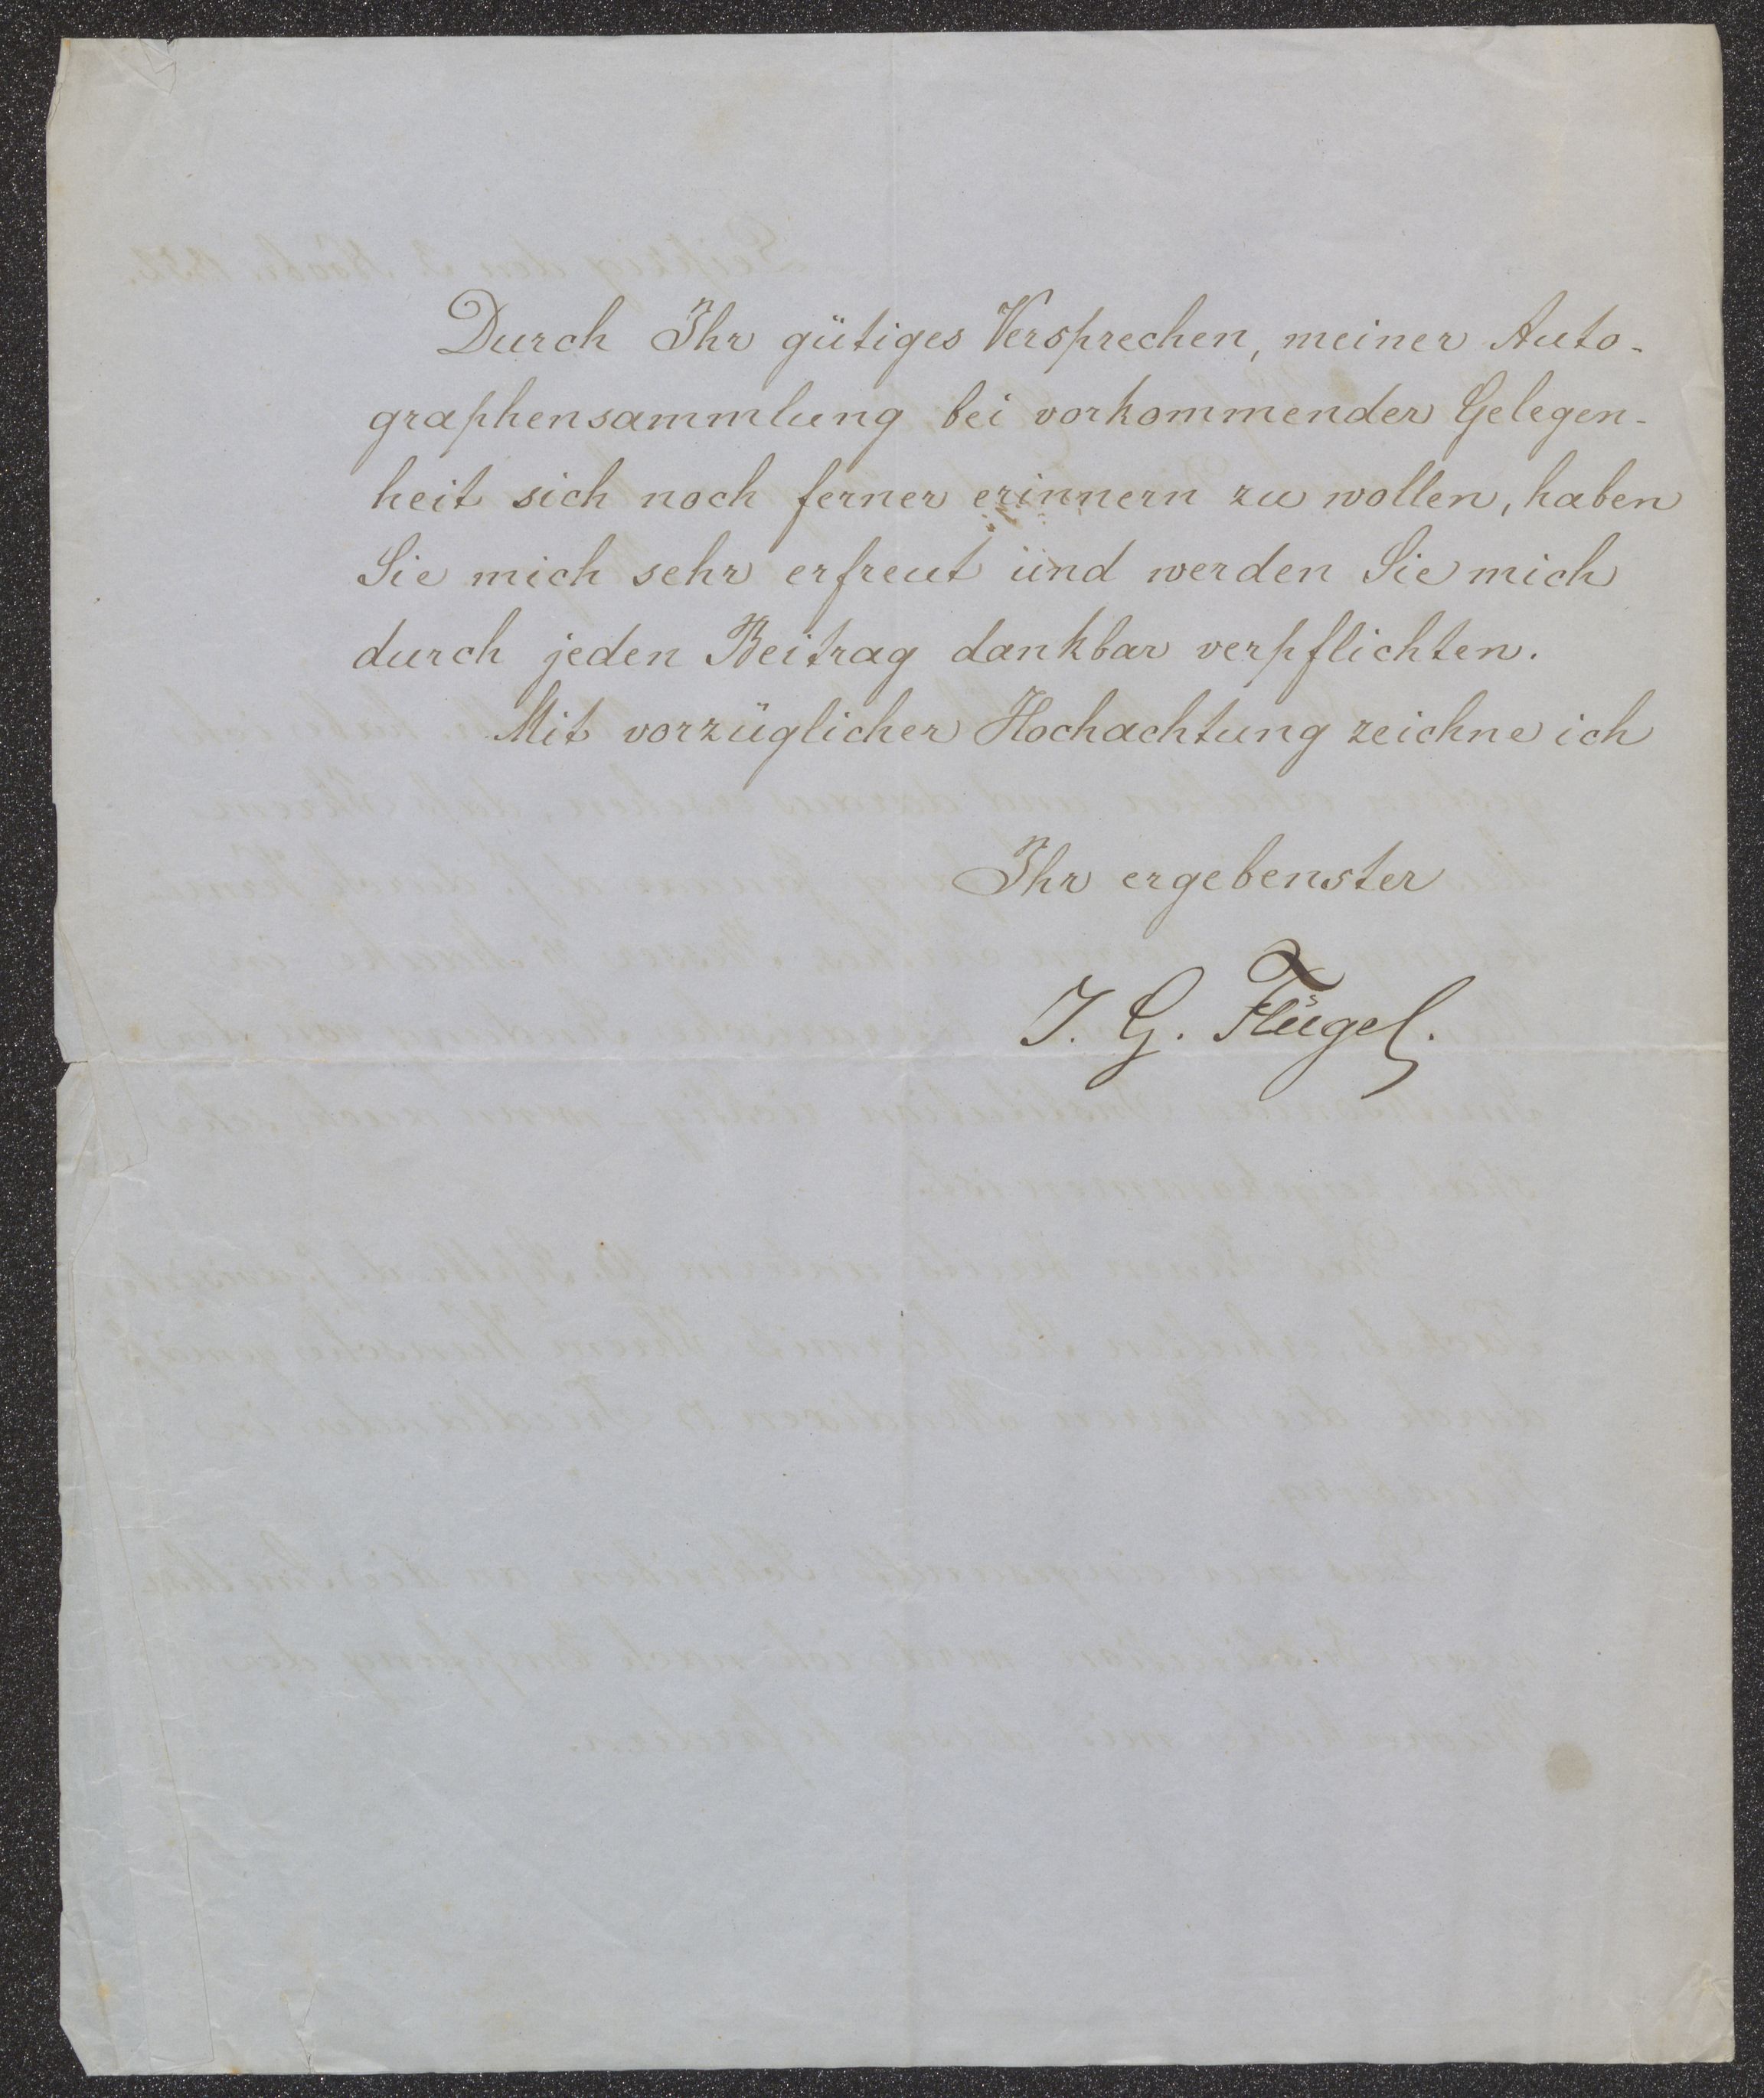 Durch Ihr gütiges Versprechen, meiner Auto-
graphensammlung bei vorkommender Gelegen-
heit sich noch ferner erinnern zu wollen, haben
Sie mich sehr erfreut und werden Sie mich
durch jeden Beitrag dankbar verpflichten.
Mit vorzüglicher Hochachtung zeichne ich
Ihr ergebenster
J. G. Flügel.